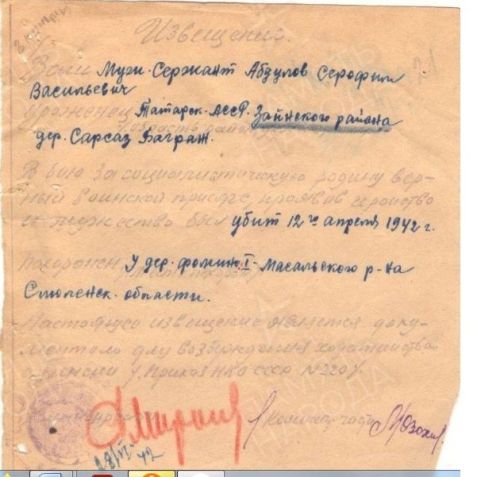 Извещение
Ваш Муж-Сержант Абдулов Серофим
Васильевич
уроженец Татарск. АССР. Зайнского района
дер. Сарсаз Баграж.
В бою за социалистическую родину вер-
ный воинской присяге, проявив геройство
и мужество был убит 12го апреля 1942 г.
Похоронен У дер. фомино I - Масальского р-на
Смоленск. области.
Настоящее извещение является доку-
ментом для возбуждения ходатайства
о пенсии /Приказ НКО СССР №220/.